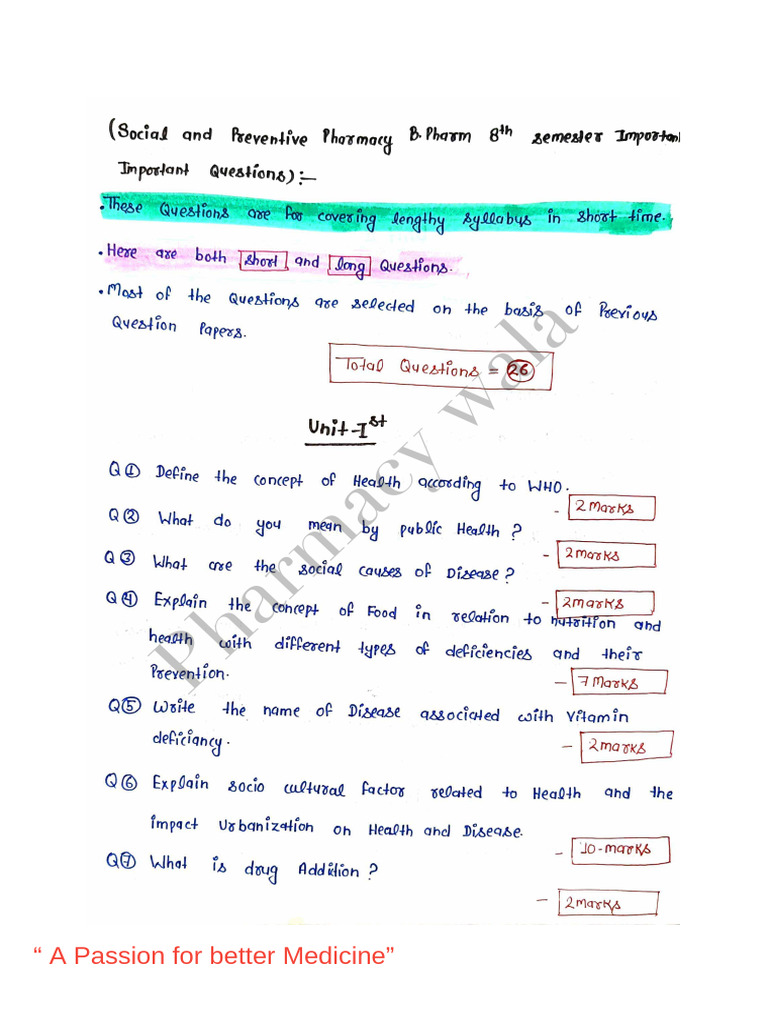 (Social and Preventive Pharmacy B.Pharm 8th semester Important
Important Questions):-
• These Questions are for covering lengthy syllabus in short time.
• Here are both short and long Questions.
• Most of the Questions are selected on the basis of Previous
Question Papers.
Total Questions = 26
Unit-Ist
Q① Define the concept of Health according to WHO.
- 2 Marks
Q② What do you mean by public Health?
- 2marks
Q③ What are the social causes of Disease?
- 2marks
Q④ Explain the concept of Food in relation to nutrition and
health with different types of deficiencies and their
Prevention.
- 7 Marks
Q⑤ Write the name of Disease associated with Vitamin
deficiancy.
- 2marks
Q⑥ Explain socio cultural factor related to Health and the
impact Urbanization on Health and Disease.
- 10-marks
Q⑦ What is drug Addition?
- 2marks
Pharmacy wala
“ A Passion for better Medicine”